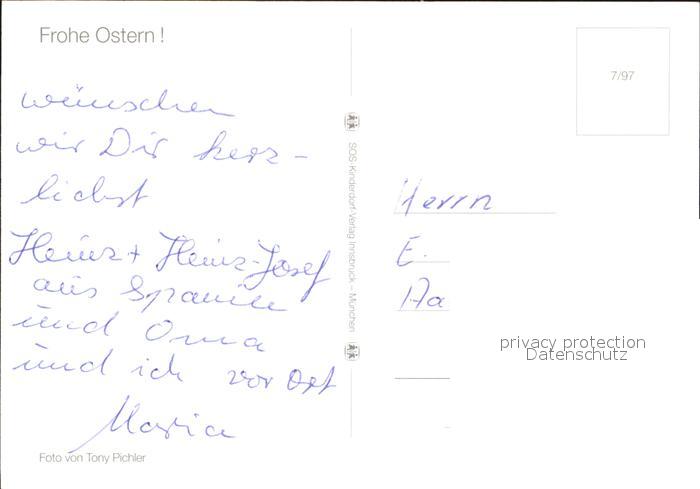 Frohe Ostern !
wünschen
wir Dir herz-
lichst
Heinz + Heinz-Josef
aus Spanien
und Oma
und ich vor Ort
Maria
Foto von Tony Pichler
SOS-Kinderdorf-Verlag Innsbruck – München
7/97
Herrn
E.
privacy protection
Datenschutz